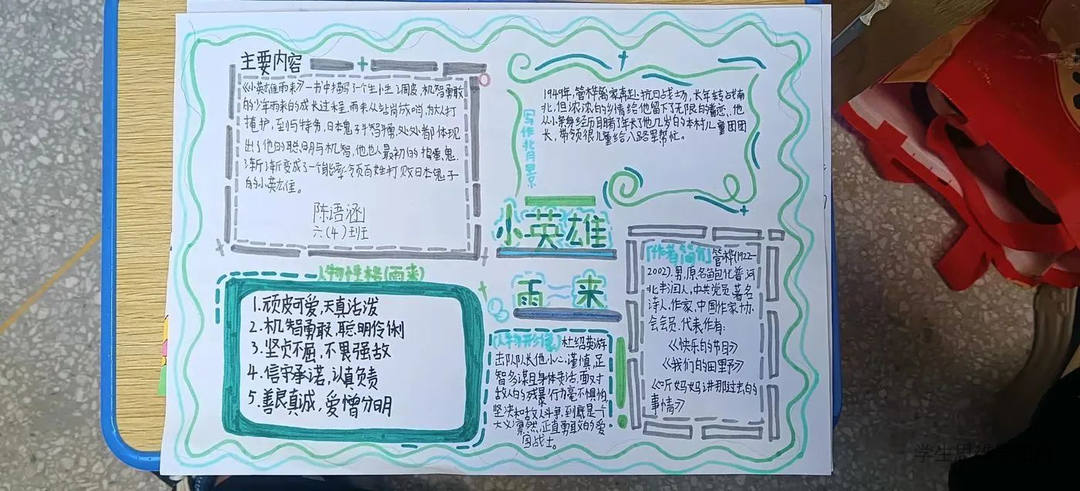 主要内容
《小英雄雨来》一书中描写了一个生小生
的少年雨来的成长过程,雨来从站岗放哨,
掩护,到与特务,日本鬼子斗智斗勇,处处都体现
出了他的聪明与机智,他也从最初的捣蛋鬼
渐渐变成了一个能率领百姓打败日本鬼子
的小英雄。
陈语涵
六(4)班
写作背景
1940年,管桦离家奔赴抗日战场,长年转战南
北,但浓浓的乡情给他留下了无限的眷恋,他
从小亲身经历目睹了年长他几岁的本村儿童团团
长,带领很儿童给八路军帮忙。
小英雄
雨来
人物性格(雨来)
1.顽皮可爱,天真活泼
2.机智勇敢,聪明伶俐
3.坚贞不屈,不畏强敌
4.信守承诺,认真负责
5.善良真诚,爱憎分明
人物形象 杜绍英游
击队队长他小心谨慎,足
智多谋且身体素洁,面对
敌人的残暴行为毫不惧怕,
坚决和敌人斗争,到底是一个
大义凛然,正直勇敢的爱
国战士。
作者简介 管桦(1922-
2002),男,原名鲍化普,河
北丰润人,中共党员,著名
诗人,作家,中国作家协
会会员.代表作有:
《快乐的节日》
《我们的田野》
《听妈妈讲那过去的
事情》